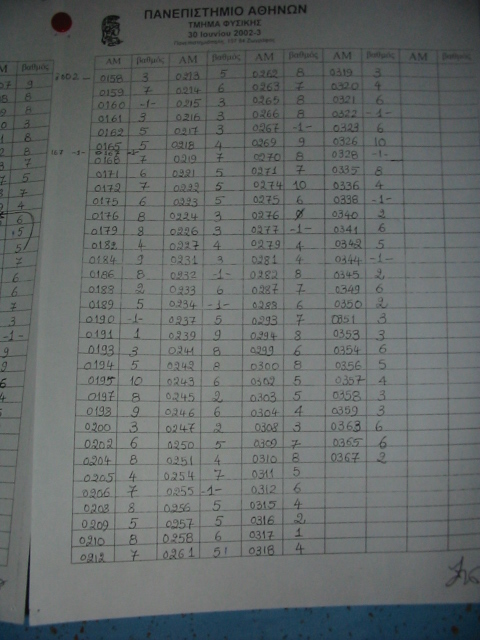 ΠΑΝΕΠΙΣΤΗΜΙΟ ΑΘΗΝΩΝ
ΤΜΗΜΑ ΦΥΣΙΚΗΣ
30 Ιουνίου 2002-3
ΑΜ βαθμός ΑΜ βαθμός ΑΜ βαθμός ΑΜ βαθμός ΑΜ βαθμός
0158 3 0213 5 0262 8 0319 3
0159 7 0214 6 0263 7 0320 4
0160 -1- 0215 3 0265 8 0321 6
0161 3 0216 3 0266 8 0322 -1-
0162 5 0217 3 0267 -1- 0323 6
0165 5 0218 4 0269 9 0326 10
0168 7 0219 7 0270 8 0328 -1-
0171 6 0221 5 0271 7 0335 8
0172 7 0222 5 0274 10 0336 4
0175 6 0223 5 0275 6 0338 -1-
0176 8 0224 3 0276 0340 2
0179 8 0226 3 0277 -1- 0341 6
0182 4 0227 4 0279 4 0342 5
0184 9 0231 3 0281 4 0344 -1-
0186 8 0232 -1- 0282 8 0345 2
0188 2 0233 6 0287 7 0349 6
0189 5 0234 -1- 0288 6 0350 2
0190 -1- 0237 5 0293 7 0351 3
0191 1 0239 9 0294 8 0353 3
0193 3 0241 8 0299 6 0354 6
0194 5 0242 8 0300 8 0356 5
0195 10 0243 6 0302 5 0357 4
0197 8 0245 2 0303 5 0358 3
0198 9 0246 6 0304 4 0359 3
0200 3 0247 2 0308 3 0363 6
0202 6 0250 5 0309 7 0365 6
0204 8 0251 4 0310 8 0367 2
0205 4 0254 7 0311 5
0206 7 0255 -1- 0312 6
0208 8 0256 5 0315 4
0209 5 0257 5 0316 2
0210 8 0258 6 0317 1
0212 7 0261 5! 0318 4